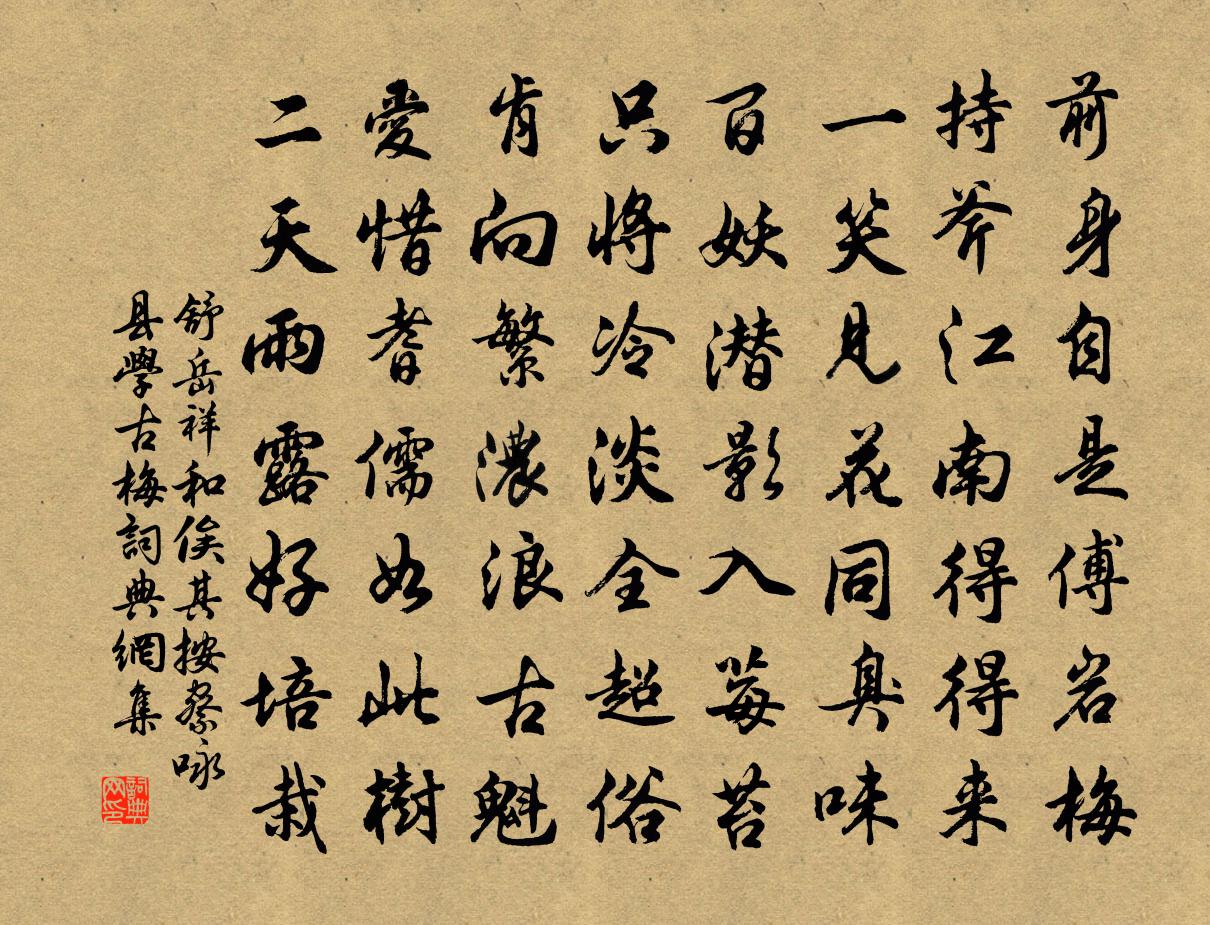 前身自是傅岩梅
持斧江南得得来
一笑見花同臭味
百妖潜影入莓苔
只將冷淡全超俗
肯向繁濃浪古魁
愛惜耆儒如此樹
二天雨露好培栽
舒岳祥和俟其按察咏
县學古梅詞典網集
詞典
网印